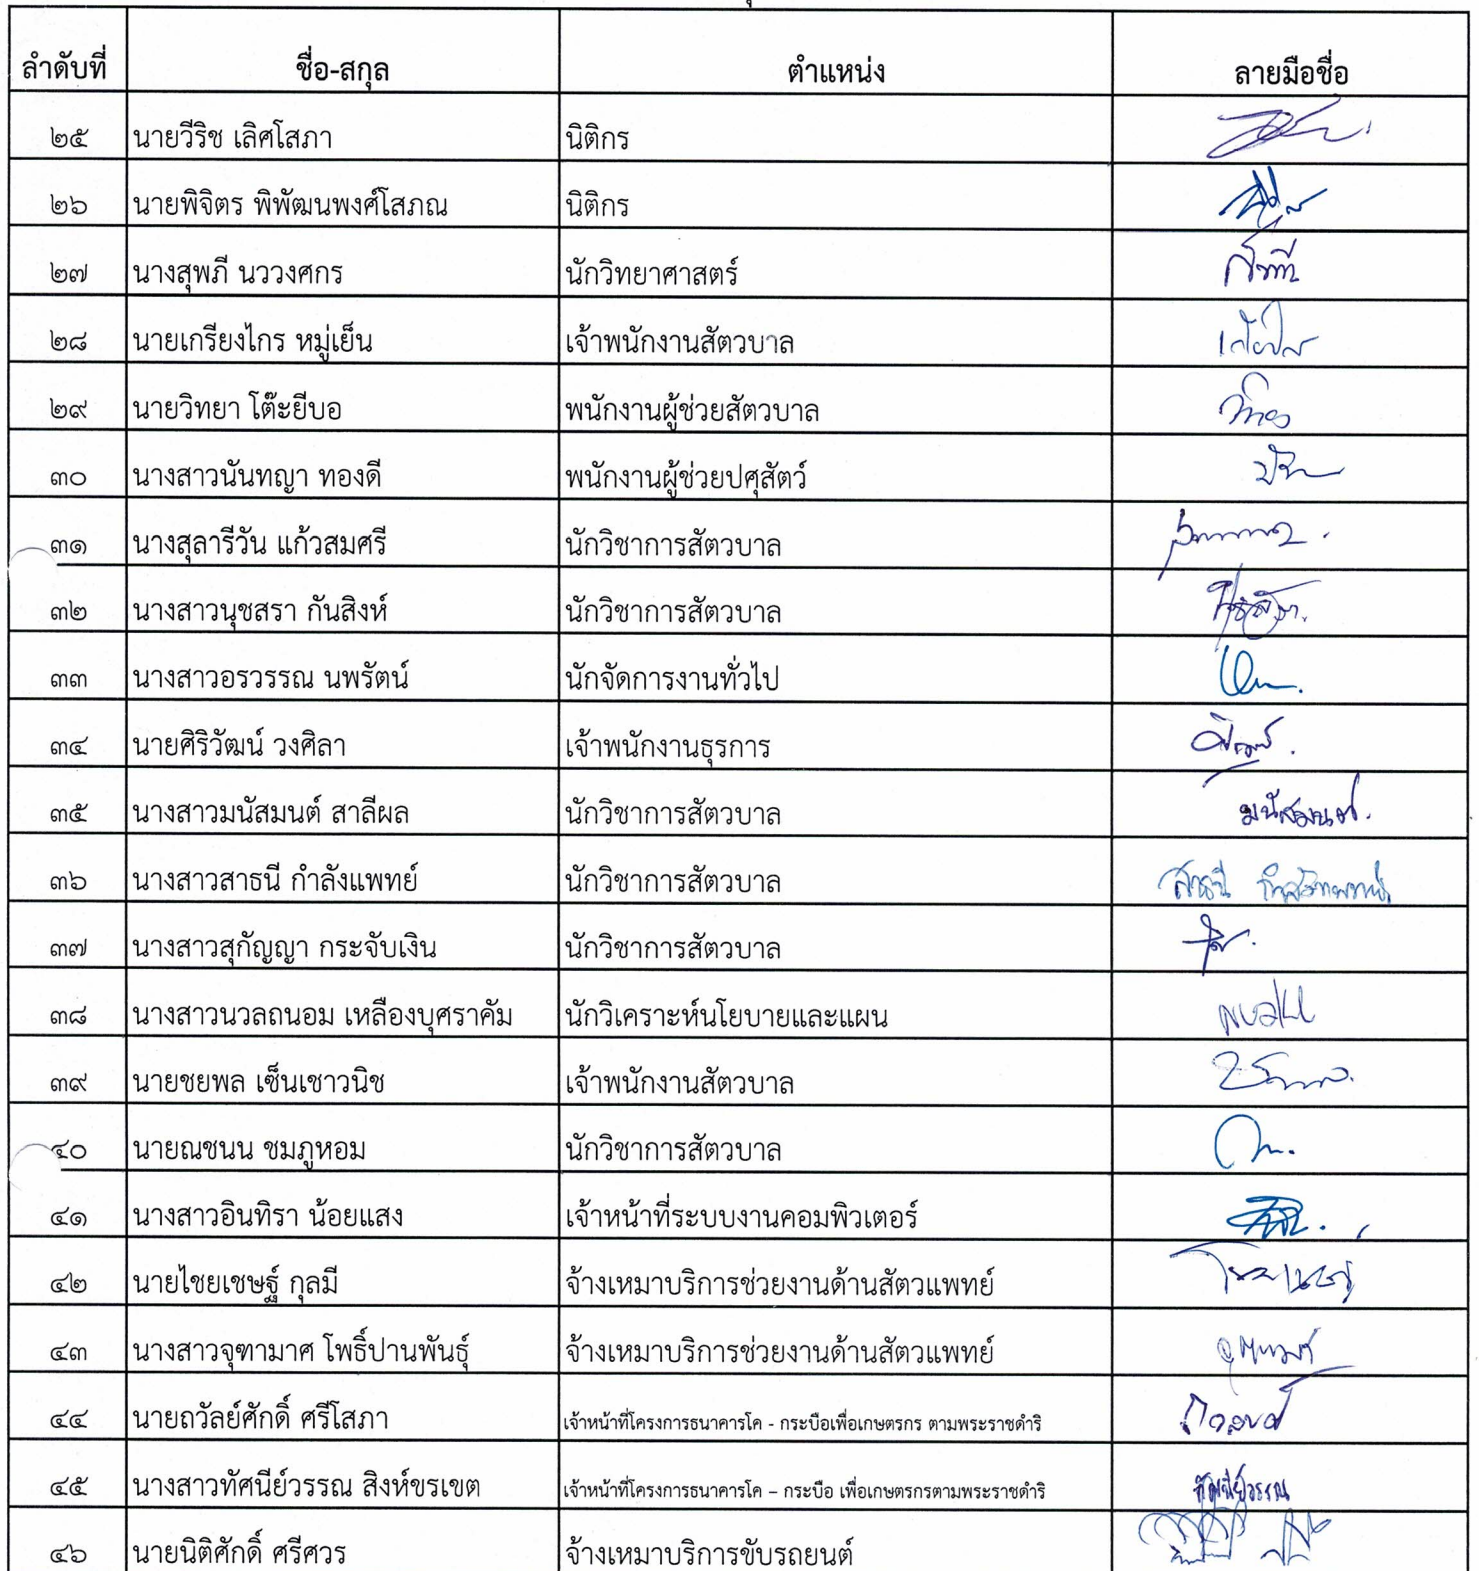 ลำดับที่ ชื่อ-สกุล ตำแหน่ง ลายมือชื่อ
๒๕ นายวีริช เลิศโสภา นิติกร
๒๖ นายพิจิตร พิพัฒนพงศ์โสภณ นิติกร
๒๗ นางสุพภี นววงศกร นักวิทยาศาสตร์
๒๘ นายเกรียงไกร หมู่เย็น เจ้าพนักงานสัตวบาล
๒๙ นายวิทยา โต๊ะยีบอ พนักงานผู้ช่วยสัตวบาล
๓๐ นางสาวนันทญา ทองดี พนักงานผู้ช่วยปศุสัตว์
๓๑ นางสุลารีวัน แก้วสมศรี นักวิชาการสัตวบาล
๓๒ นางสาวนุชสรา กันสิงห์ นักวิชาการสัตวบาล
๓๓ นางสาวอรวรรณ นพรัตน์ นักจัดการงานทั่วไป
๓๔ นายศิริวัฒน์ วงศิลา เจ้าพนักงานธุรการ
๓๕ นางสาวมนัสมนต์ สาลีผล นักวิชาการสัตวบาล มนัสมนต์
๓๖ นางสาวสาธนี กำลังแพทย์ นักวิชาการสัตวบาล สาธนี กำลังแพทย์
๓๗ นางสาวสุกัญญา กระจับเงิน นักวิชาการสัตวบาล
๓๘ นางสาวนวลถนอม เหลืองบุศราคัม นักวิเคราะห์นโยบายและแผน
๓๙ นายชยพล เซ็นเชาวนิช เจ้าพนักงานสัตวบาล
๔๐ นายณชนน ชมภูหอม นักวิชาการสัตวบาล
๔๑ นางสาวอินทิรา น้อยแสง เจ้าหน้าที่ระบบงานคอมพิวเตอร์
๔๒ นายไชยเชษฐ์ กุลมี จ้างเหมาบริการช่วยงานด้านสัตวแพทย์
๔๓ นางสาวจุฑามาศ โพธิ์ปานพันธุ์ จ้างเหมาบริการช่วยงานด้านสัตวแพทย์
๔๔ นายถวัลย์ศักดิ์ ศรีโสภา เจ้าหน้าที่โครงการธนาคารโค - กระบือเพื่อเกษตรกร ตามพระราชดำริ
๔๕ นางสาวทัศนีย์วรรณ สิงห์ขรเขต เจ้าหน้าที่โครงการธนาคารโค – กระบือ เพื่อเกษตรกรตามพระราชดำริ ทัศนีย์วรรณ
๔๖ นายนิติศักดิ์ ศรีศวร จ้างเหมาบริการขับรถยนต์